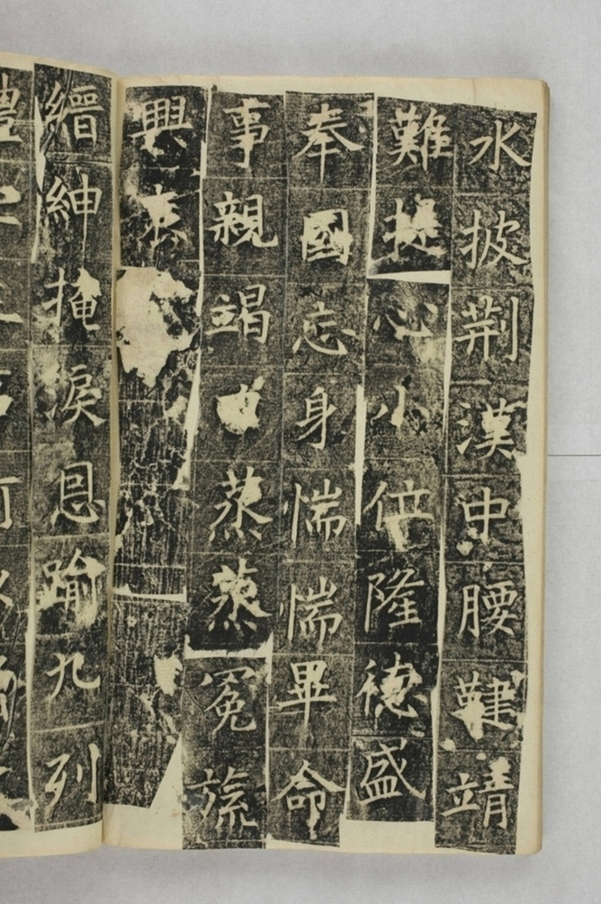 水披荆漢中腰鞬靖
難提心小位隆德盛
奉國忘身惴惴畢命
事親竭蒸蒸冕旒
興
縉紳掩淚恩踰九列